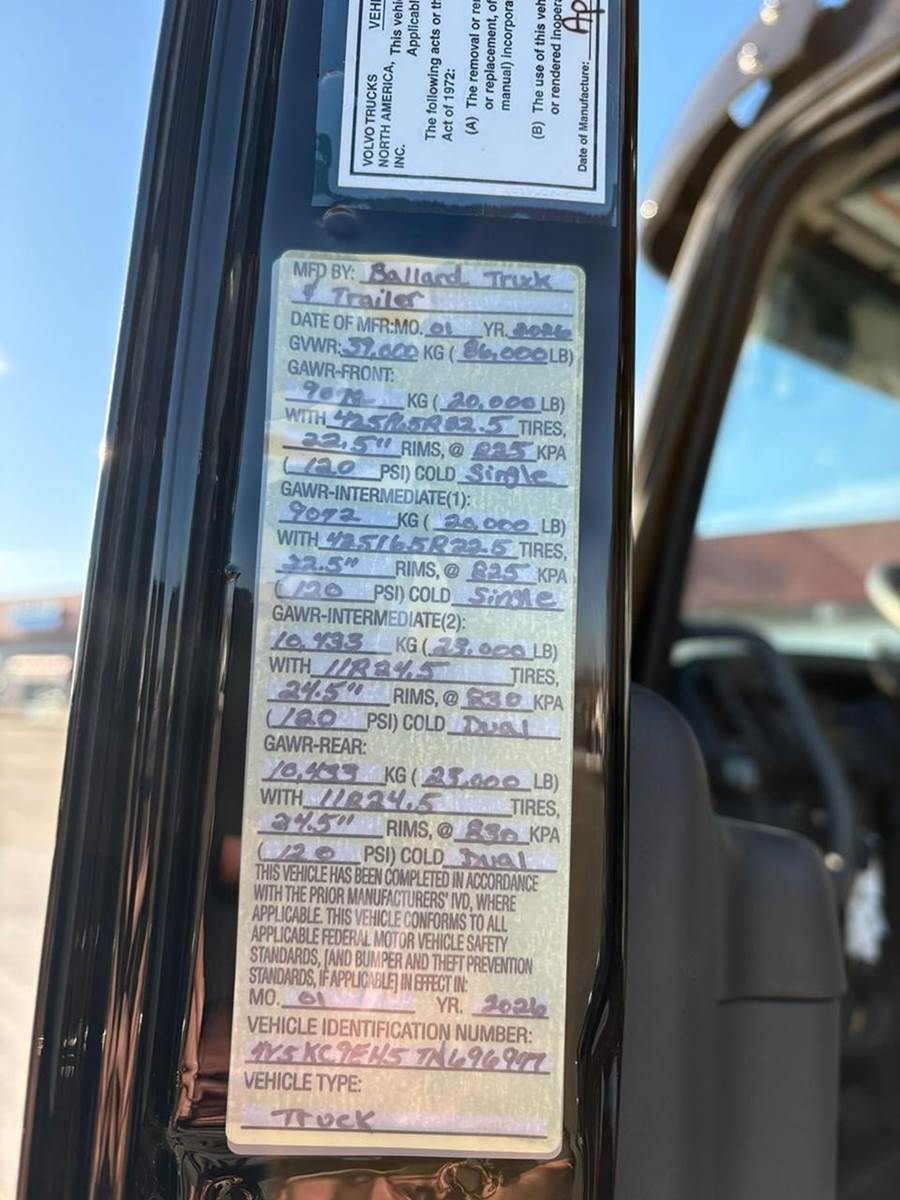 VOLVO TRUCKS
NORTH AMERICA,
INC.
This vehi
The following acts or th
Act of 1972:
(A) The removal or re
or replacement, of
manual) incorpora
(B) The use of this veh
or rendered inopera
Date of Manufacture: Ap
MFD BY: Ballard Truck
& Trailer
DATE OF MFR:MO. 01 YR. 2026
GVWR: 39,000 KG ( 86,000 LB)
GAWR-FRONT:
9072 KG ( 20,000 LB)
WITH 425/65R22.5 TIRES,
22.5" RIMS, @ 825 KPA
( 120 PSI) COLD Single
GAWR-INTERMEDIATE(1):
9072 KG ( 20,000 LB)
WITH 425/65R22.5 TIRES,
22.5" RIMS, @ 825 KPA
( 120 PSI) COLD Single
GAWR-INTERMEDIATE(2):
10,433 KG ( 23,000 LB)
WITH 11R24.5 TIRES,
24.5" RIMS, @ 830 KPA
( 120 PSI) COLD Dual
GAWR-REAR:
10,433 KG ( 23,000 LB)
WITH 11R24.5 TIRES,
24.5" RIMS, @ 830 KPA
( 120 PSI) COLD Dual
THIS VEHICLE HAS BEEN COMPLETED IN ACCORDANCE
WITH THE PRIOR MANUFACTURERS' IVD, WHERE
APPLICABLE. THIS VEHICLE CONFORMS TO ALL
APPLICABLE FEDERAL MOTOR VEHICLE SAFETY
STANDARDS, [AND BUMPER AND THEFT PREVENTION
STANDARDS, IF APPLICABLE] IN EFFECT IN:
MO. 01 YR. 2026
VEHICLE IDENTIFICATION NUMBER:
4V5KC9EH5TN696947
VEHICLE TYPE:
Truck